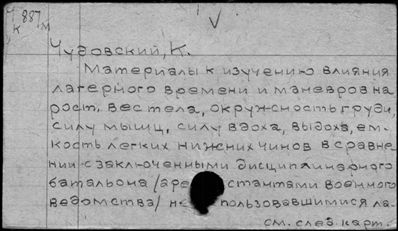 V
Ч 887
К м
Чудовский, К.
Материалы к изучению влияния
лагерного времени и маневров на
рост, вес тела, окружность груди,
силу мышц, силу вдоха, выдоха, ем-
кость легких нижних чинов в сравне
нии с заключенными дисциплинарного
батальона /аре стантами военного
ведомства/ не пользовавшимися ла-
см. след. карт.